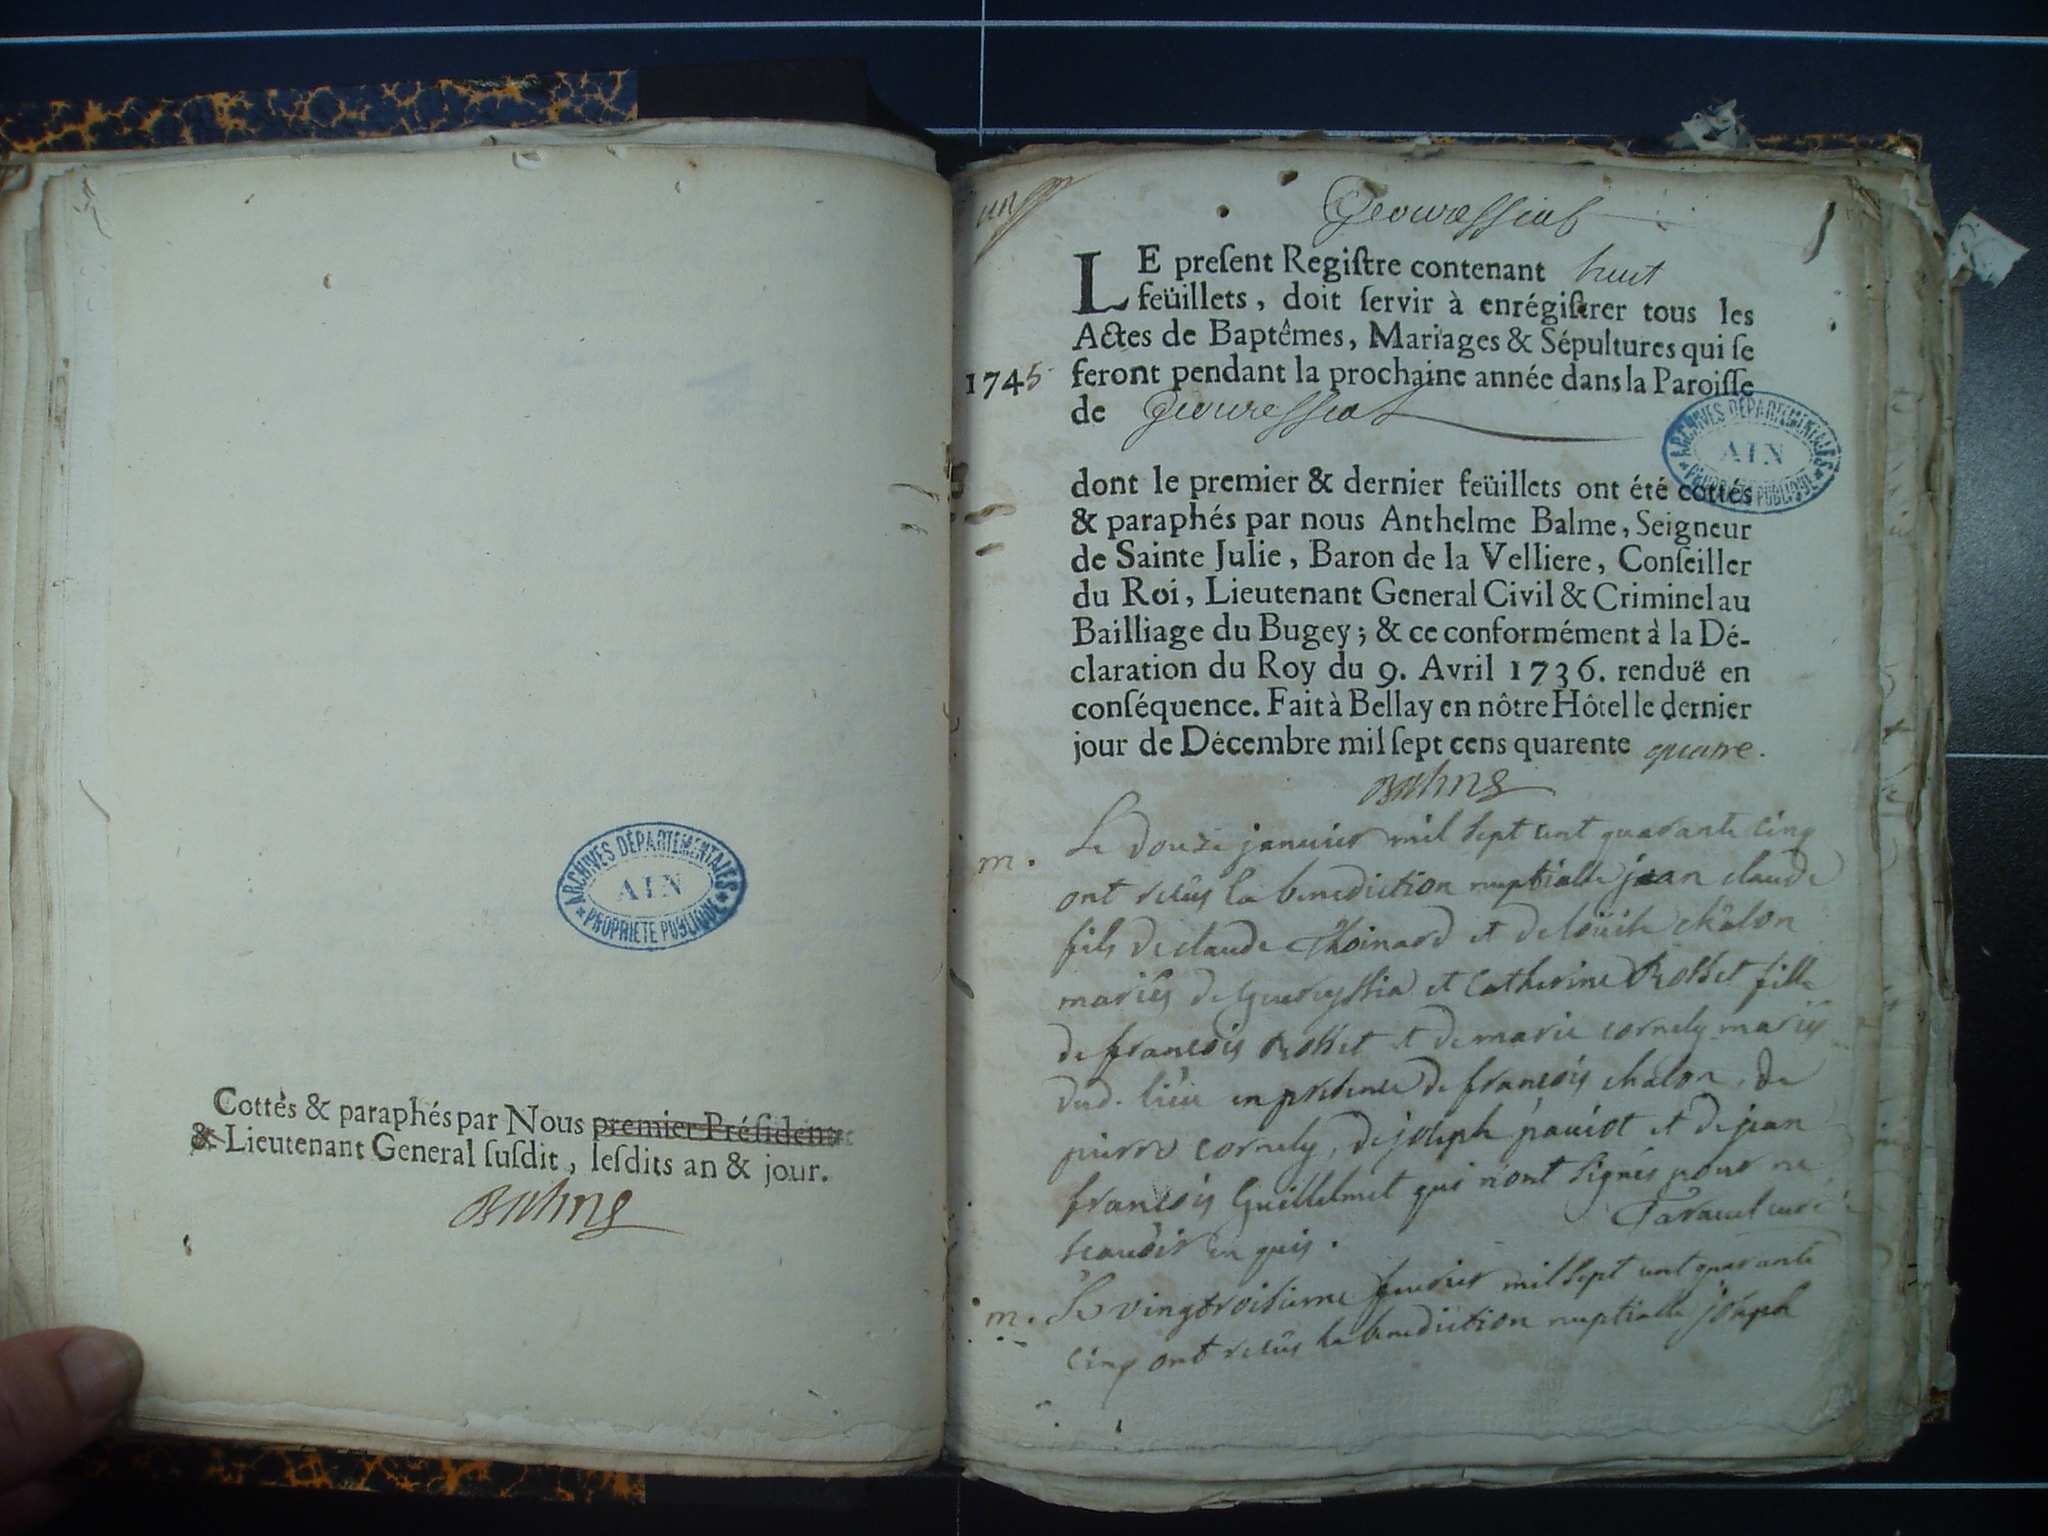 ARCHIVES DÉPARTEMENTALES
AIN
PROPRIÉTÉ PUBLIQUE
Cottès & paraphés par Nous premier Préſident
& Lieutenant General ſuſdit, leſdits an & jour.
un
Geovreſſiat
1
LE preſent Regiſtre contenant huit
feüillets, doit ſervir à enrégiſtrer tous les
Actes de Baptêmes, Mariages & Sépultures qui ſe
1745 feront pendant la prochaine année dans la Paroiſſe
de Geovreſſiat
ARCHIVES DÉPARTEMENTALES
AIN
PROPRIÉTÉ PUBLIQUE
dont le premier & dernier feüillets ont été cottés
& paraphés par nous Anthelme Balme, Seigneur
de Sainte Julie, Baron de la Velliere, Conſeiller
du Roi, Lieutenant General Civil & Criminel au
Bailliage du Bugey; & ce conformément à la Dé-
claration du Roy du 9. Avril 1736. renduë en
conſéquence. Fait à Bellay en nôtre Hôtel le dernier
jour de Décembre mil ſept cens quarente quatre.
m. Le douze janvier mil sept cent quarante cinq
ont reçûs la benediction nuptialle jean claude
fils de claude Thoinard et de loüise chalon
mariés de et Catherine Rosset fille
de françois Rosset et de marie cornely mariés
dud. lieu en presence de françois chalon, de
pierre cornely, de joseph pauiot et de jean
françois Guillelmet qui n'ont signés pour ne
scauoir en quis. curé
m. Le vingtroisieme feurier mil sept cent quarante
cinq ont reçûs la benediction nuptialle joseph